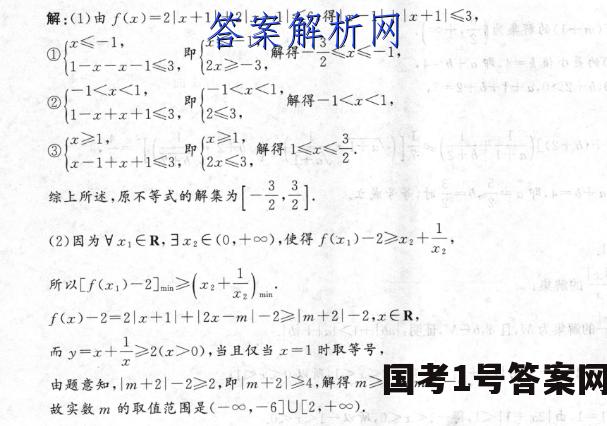 解:(1)由 f(x)=2|x+1|+|2x-1|≤6,得|x-1|+|x+1|≤3,
答案解析网
①{x≤-1, 1-x-x-1≤3, 即{x≤-1, 2x≥-3, 解得-3/2≤x≤-1,
②{-1<x<1, 1-x+x+1≤3, 即{-1<x<1, 2≤3, 解得-1<x<1,
③{x≥1, x-1+x+1≤3, 即{x≥1, 2x≤3, 解得1≤x≤3/2.
综上所述,原不等式的解集为[-3/2,3/2].
(2)因为∀x₁∈R,∃x₂∈(0,+∞),使得f(x₁)-2≥x₂+1/x₂,
所以[f(x₁)-2]min≥(x₂+1/x₂)min.
f(x)-2=2|x+1|+|2x-m|-2≥|m+2|-2,x∈R,
而y=x+1/x≥2(x>0),当且仅当x=1时取等号,
由题意知,|m+2|-2≥2,即|m+2|≥4,解得m≥
国考1号答案网
故实数m的取值范围是(-∞,-6]∪[2,+∞).